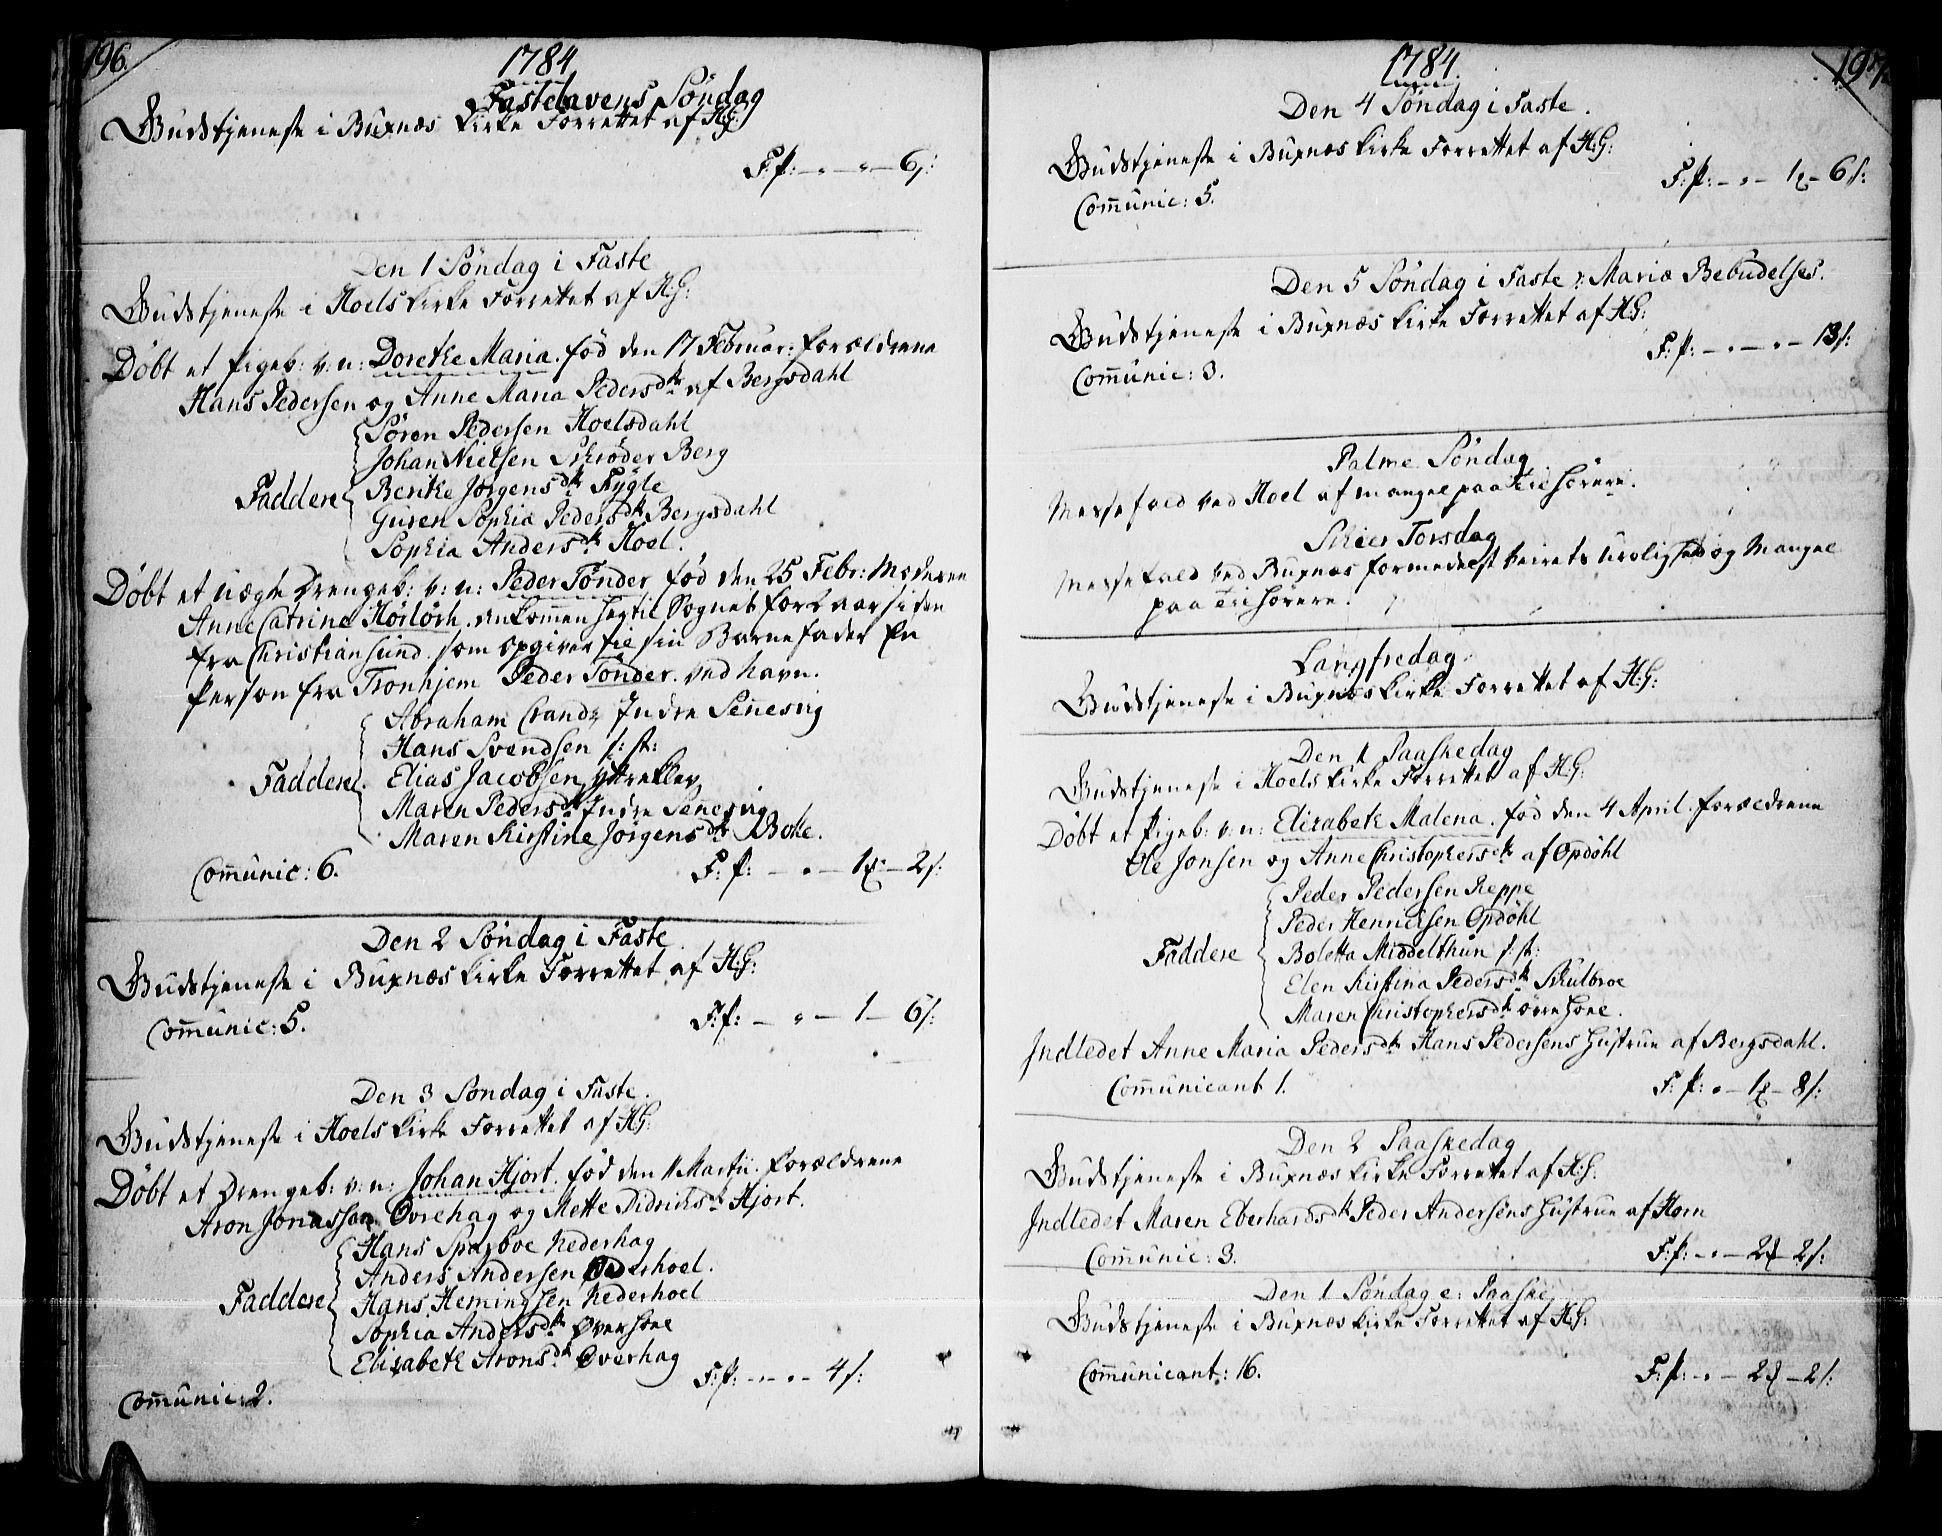 196.
1784
Fastelavens Söndag
Gudstjeneste i Buxnæs Kirke Forrettet af H:G:
F: f: — „ — „ — 6 s:
Den 1 Söndag i Faste
Gudstjeneste i Hoels Kirke Forrettet af H:G:
Döbt et Pigeb: v: n: Dorethe Maria. fød den 17 Februar: Forældrene
Hans Pedersen og Anne Maria Pedersdtr af Bergsdahl
Sören Pedersen Hoelsdahl
Johan Nielsen Schröder Berg
Faddere Benthe Jörgensdtr Fygle
Guren Sophia Pedersdtr Bergsdahl
Sophia Andersdtr Hoel.
Döbt et uægte Drengeb: v: n: Peder Tönder fød den 25 Febr: Moderen
Anne Catrine ankommen hertil Sognet forl: Aar siden
fra Christiansund. som opgiver til sin Barnefader En
Person fra Tronhjem Peder Tönder. ved Navn.
Abraham Indre Senesvig
Hans Svendsen s: st:
Faddere Elias Jacobsen Yttreklev
Maren Pedersdtr Indre Senesvig
Maren Kirstine Jörgensdtr Bolle.
Comunic: 6. F: f: — „ — 1 — 2 s:
Den 2 Söndag i Faste
Gudstjeneste i Buxnæs Kirke Forrettet af H:G:
Comunic: 5. F: f: — „ — 1 — 6 s:
Den 3 Söndag i Faste.
Gudstjeneste i Hoels Kirke Forrettet af H:G:
Döbt et Drengeb: v: n: Johan Hjort. fød den 11 Martii. Forældrene
Aron Jonassen Øvrehag og Mette Didrichsdtr Hjort.
Hans Sparboe Nederhag
Anders Andersen
Faddere Hans Hemingsen Nederhoel
Sophia Andersdtr Overhoel
Elisabeth Aronsdtr Øverhag
Comunic: 2. F: f: — „ — „ — 4 s:
197
1784.
Den 4 Söndag i Faste.
Gudstjeneste i Buxnæs Kirke Forrettet af H:G:
Comunic: 5. F: f: — „ — 1 — 6 s:
Den 5 Söndag i Faste : Mariæ Bebudelses.
Gudstjeneste i Buxnæs Kirke Forrettet af H:G:
Comunic: 3. F: f: — „ — „ — 13 s:
Palme Söndag
Messefald ved Hoel af mangel paa Tilhörere.
Skier Torsdag
Messefald ved Buxnæs formedelst Veirets Urolighed og Mangel
paa Tilhörere.
Langfredag
Gudstjeneste i Buxnæs Kirke Forrettet af H:G:
Den 1 Paaskedag
Gudstjeneste i Hoels Kirke Forrettet af H:G:
Döbt et Pigeb: v: n: Elisabeth Malena. fød den 4 April. Forældrene
Ole Jonsen og Anne Christophersdtr af Opdöhl
Peder Pedersen Reppe
Peder Henricksen Opdöhl
Faddere Boletta Middelthun s: st:
Elen Kirstina Pedersdtr Skulbroe
Maren Christophersdtr
Indledet Anne Maria Pedersdtr Hans Pedersens Hustrue af Bergsdahl.
Comunicant 1. F: f: „ — 1 — 8 s:
Den 2 Paaskedag
Gudstjeneste i Buxnæs Kirke Forrettet af H:G:
Indledet Maren Eberhardsdtr Peder Andersens Hustrue af Horn
Comunic: 3. F: f: — „ — 2 — 2 s:
Den 1 Söndag e: Paaske
Gudstjeneste i Buxnæs Kirke Forrettet af H:G:
Comunicant: 16. F: f: — „ — 2 — 2 s: